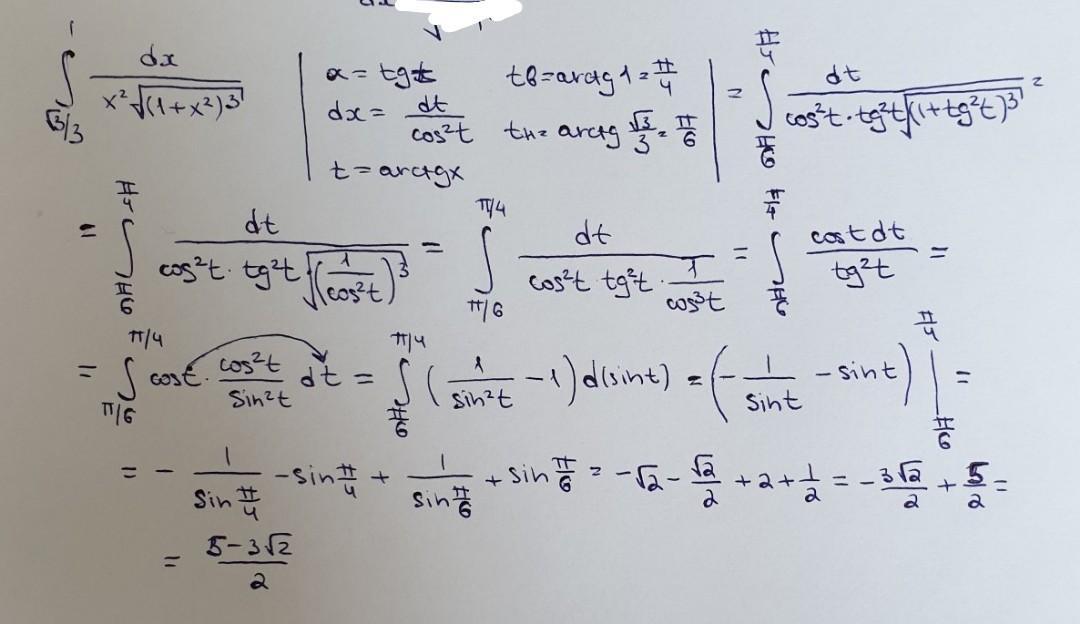 ∫_{√3/3}^{1} dx / (x²√((1+x²)³)) | x = tg t   tв = arctg 1 = π/4 | = ∫_{π/6}^{π/4} dt / (cos²t · tg²t √((1+tg²t)³)) =
dx = dt/cos²t   tн = arctg √3/3 = π/6
t = arctg x
= ∫_{π/6}^{π/4} dt / (cos²t · tg²t √((1/cos²t)³)) = ∫_{π/6}^{π/4} dt / (cos²t tg²t · 1/cos³t) = ∫_{π/6}^{π/4} cost dt / tg²t =
= ∫_{π/6}^{π/4} cost · cos²t/sin²t dt = ∫_{π/6}^{π/4} (1/sin²t − 1) d(sint) = (− 1/sint − sint) |_{π/6}^{π/4} =
= − 1/sin π/4 − sin π/4 + 1/sin π/6 + sin π/6 = −√2 − √2/2 + 2 + 1/2 = − 3√2/2 + 5/2 =
= (5−3√2)/2